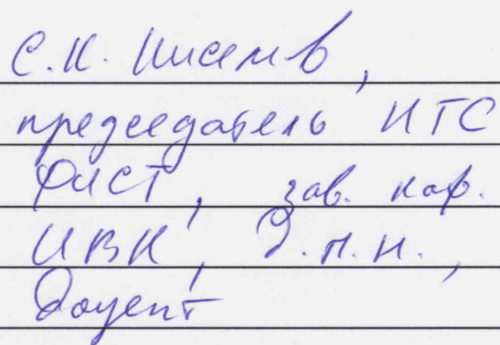 С.К. Киселев,
председатель НТС
ФИСТ, зав. каф.
ИВК, д.т.н.,
доцент